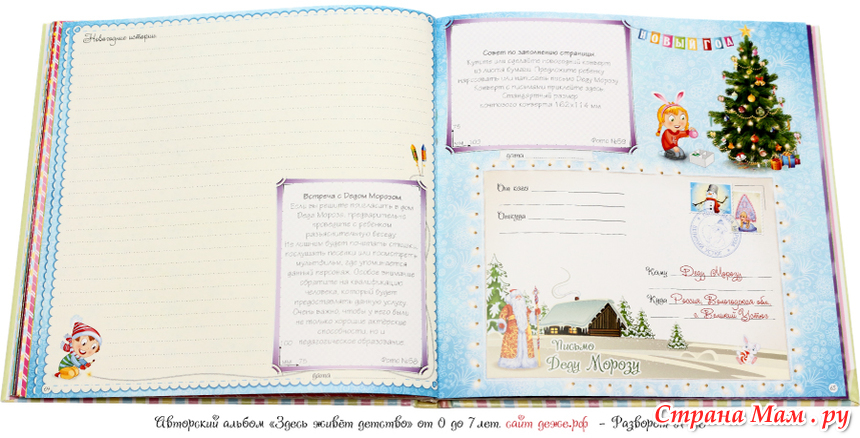 Новогодние истории
Встреча с Дедом Морозом
Если вы решите пригласить в дом
Деда Мороза, предварительно
проведите с ребенком
разъяснительную беседу.
Не лишним будет почитать стишки,
послушать песенки или посмотреть
мультфильм, где упоминается
данный персонаж. Особое внимание
обратите на квалификацию
человека, который будет
предоставлять данную услугу.
Очень важно, чтобы у него были
не только хорошие актёрские
способности, но и
педагогическое образование.
Фото №58
длина
Совет по заполнению страницы
Купите или сделайте новогодний конверт
из листа бумаги. Предложите ребенку
нарисовать или написать письмо Деду Морозу.
Конверт с письмами приклейте здесь.
Стандартный размер
почтового конверта 162х114 мм.
Фото №59
длина
НОВЫЙ ГОД
От кого
Откуда
Кому Деду Морозу
Куда Россия, Вологодская обл.
г. Великий Устюг
Письмо
Деду Морозу
Авторский альбом «Здесь живёт детство» от 0 до 7 лет. сайт деже.рф - Разворот
Страна Мам.ру